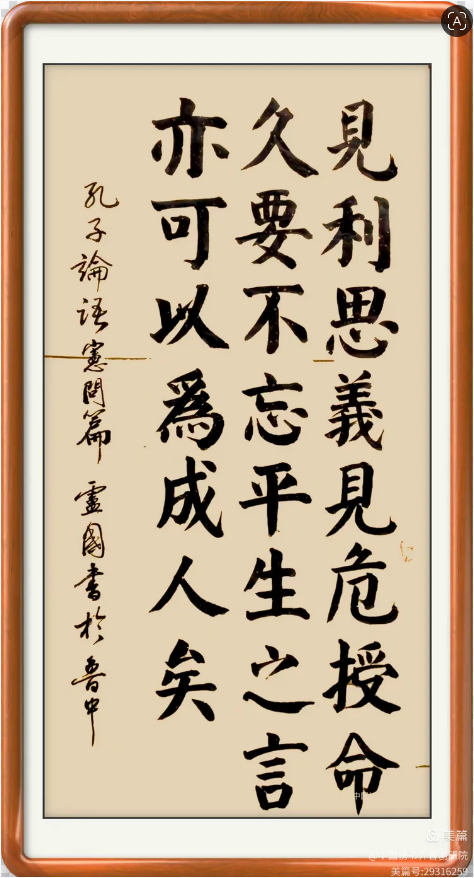 見利思義見危授命
久要不忘平生之言
亦可以為成人矣
孔子論語憲問篇 靈國書於魯中
美篇
美篇号:29316259